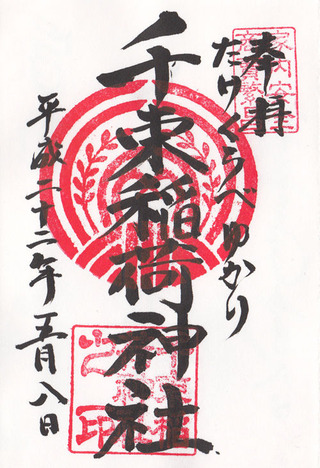 奉拝
たけくらべゆかり
千束稲荷神社
平成二十二年五月八日